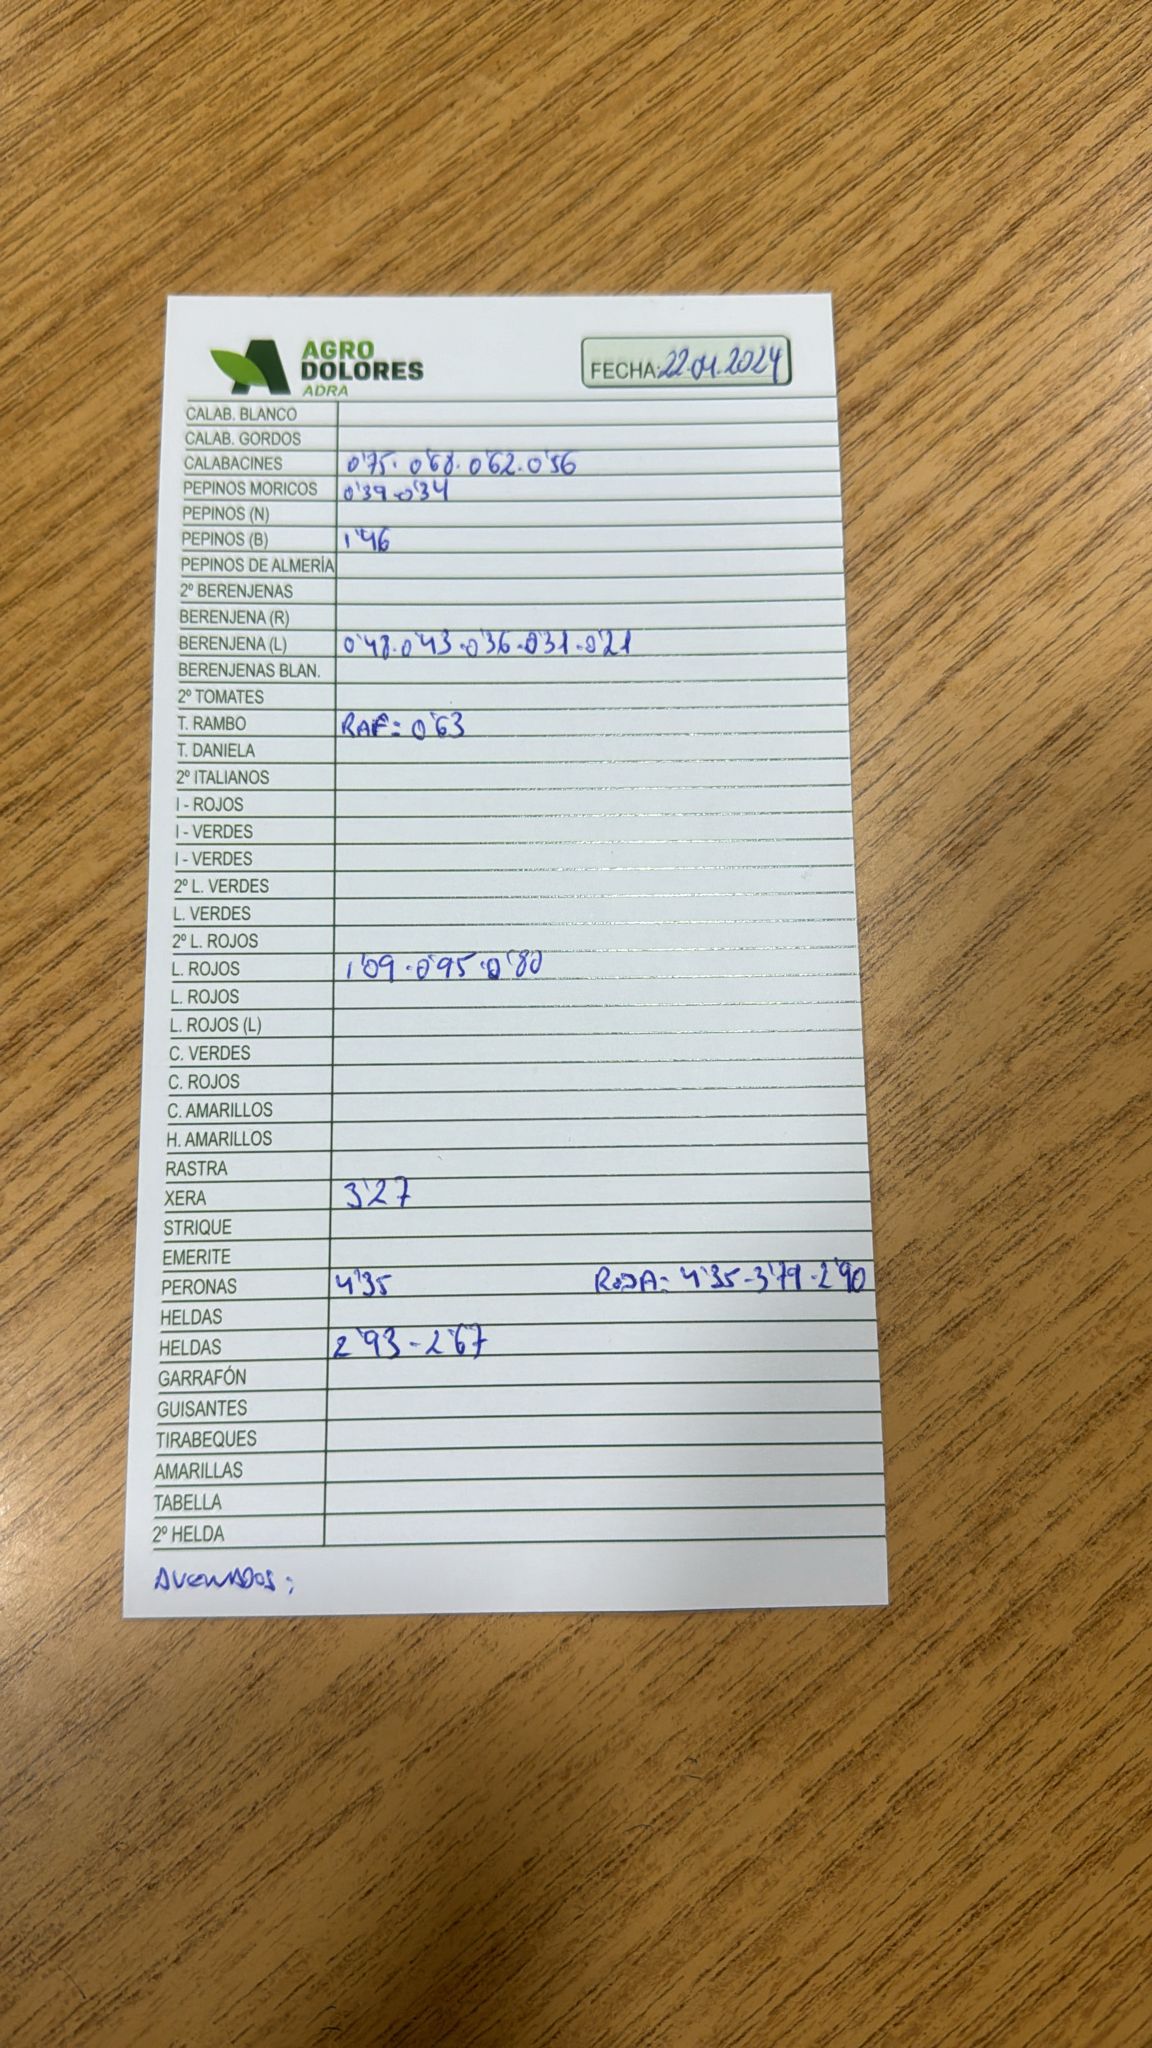 AGRO
DOLORES
ADRA
FECHA: 22.04.2024
CALAB. BLANCO
CALAB. GORDOS
CALABACINES 0'75. 0'68. 0'62. 0'56
PEPINOS MORICOS 0'39-0'34
PEPINOS (N)
PEPINOS (B) 1'46
PEPINOS DE ALMERÍA
2º BERENJENAS
BERENJENA (R)
BERENJENA (L) 0'48.0'43.0'36.0'31.0'21
BERENJENAS BLAN.
2º TOMATES
T. RAMBO RAF= 0'63
T. DANIELA
2º ITALIANOS
I - ROJOS
I - VERDES
I - VERDES
2º L. VERDES
L. VERDES
2º L. ROJOS
L. ROJOS 1'09.0'95.0'80
L. ROJOS
L. ROJOS (L)
C. VERDES
C. ROJOS
C. AMARILLOS
H. AMARILLOS
RASTRA
XERA 3'27
STRIQUE
EMERITE
PERONAS 4'35 ROJA= 4'35-3'79-2'90
HELDAS
HELDAS 2'93-2'67
GARRAFÓN
GUISANTES
TIRABEQUES
AMARILLAS
TABELLA
2º HELDA